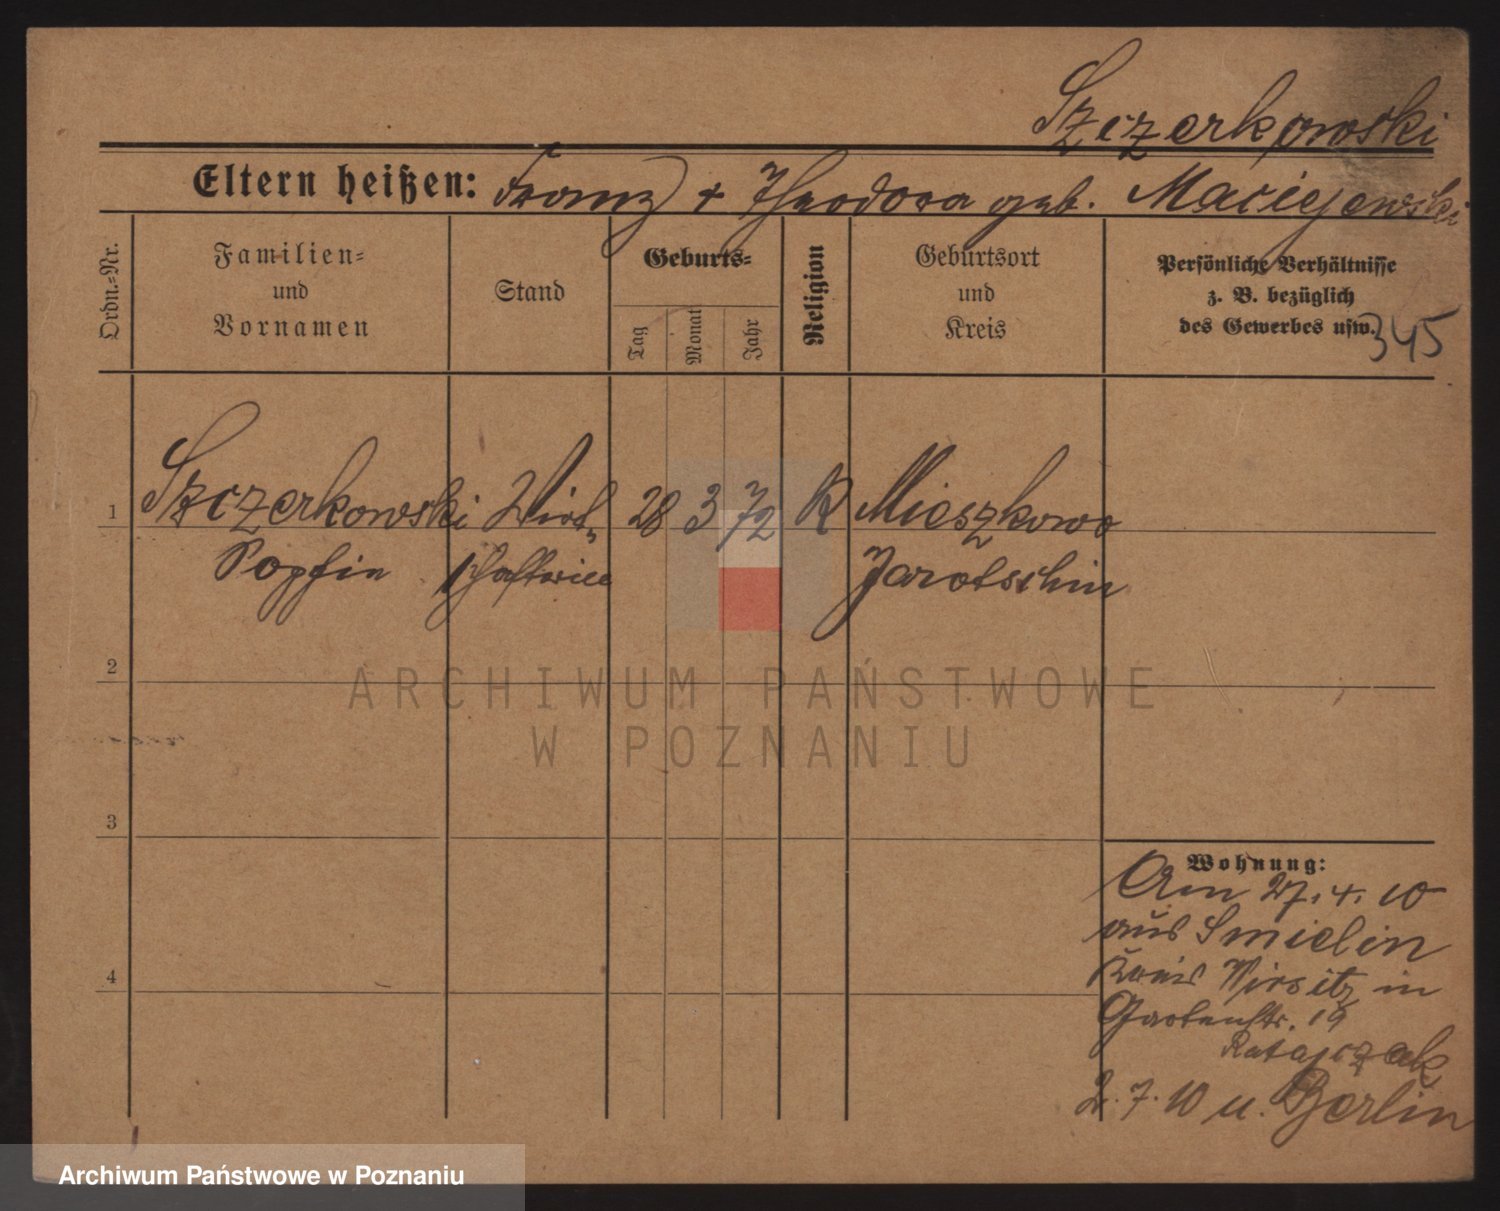 Szczerkowski
Eltern heißen: Franz + Theodora geb. Maciejewski
Ordn.-Nr.
Familien-
und
Vornamen
Stand
Geburts-
Tag
Monat
Jahr
Religion
Geburtsort
und
Kreis
Persönliche Verhältnisse
z. B. bezüglich
des Gewerbes usw.
345
1 Szczerkowski Wirt- 28 3 72 K Mieszkowo
Sophie schafterin Jarotschin
2
3
4
Wohnung:
Am 27.4.10
aus Smielin
Kreis Wirsitz in
Gartenstr. 19
Ratajczak
2.7.10 u. Berlin
ARCHIWUM PAŃSTWOWE
W POZNANIU
Archiwum Państwowe w Poznaniu